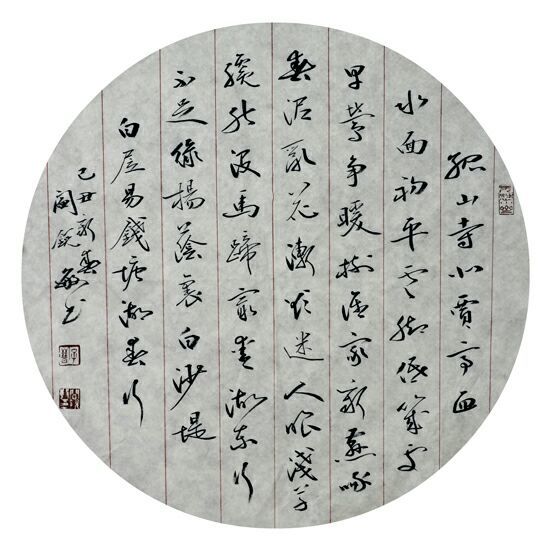 孤山寺北賈亭西
水面初平雲腳低幾處
早鶯爭暖樹誰家新燕啄
春泥亂花漸欲迷人眼淺草
纔能沒馬蹄最愛湖東行
不足綠楊蔭裏白沙堤
白居易錢塘湖春行
己丑新春
閻銳敏書